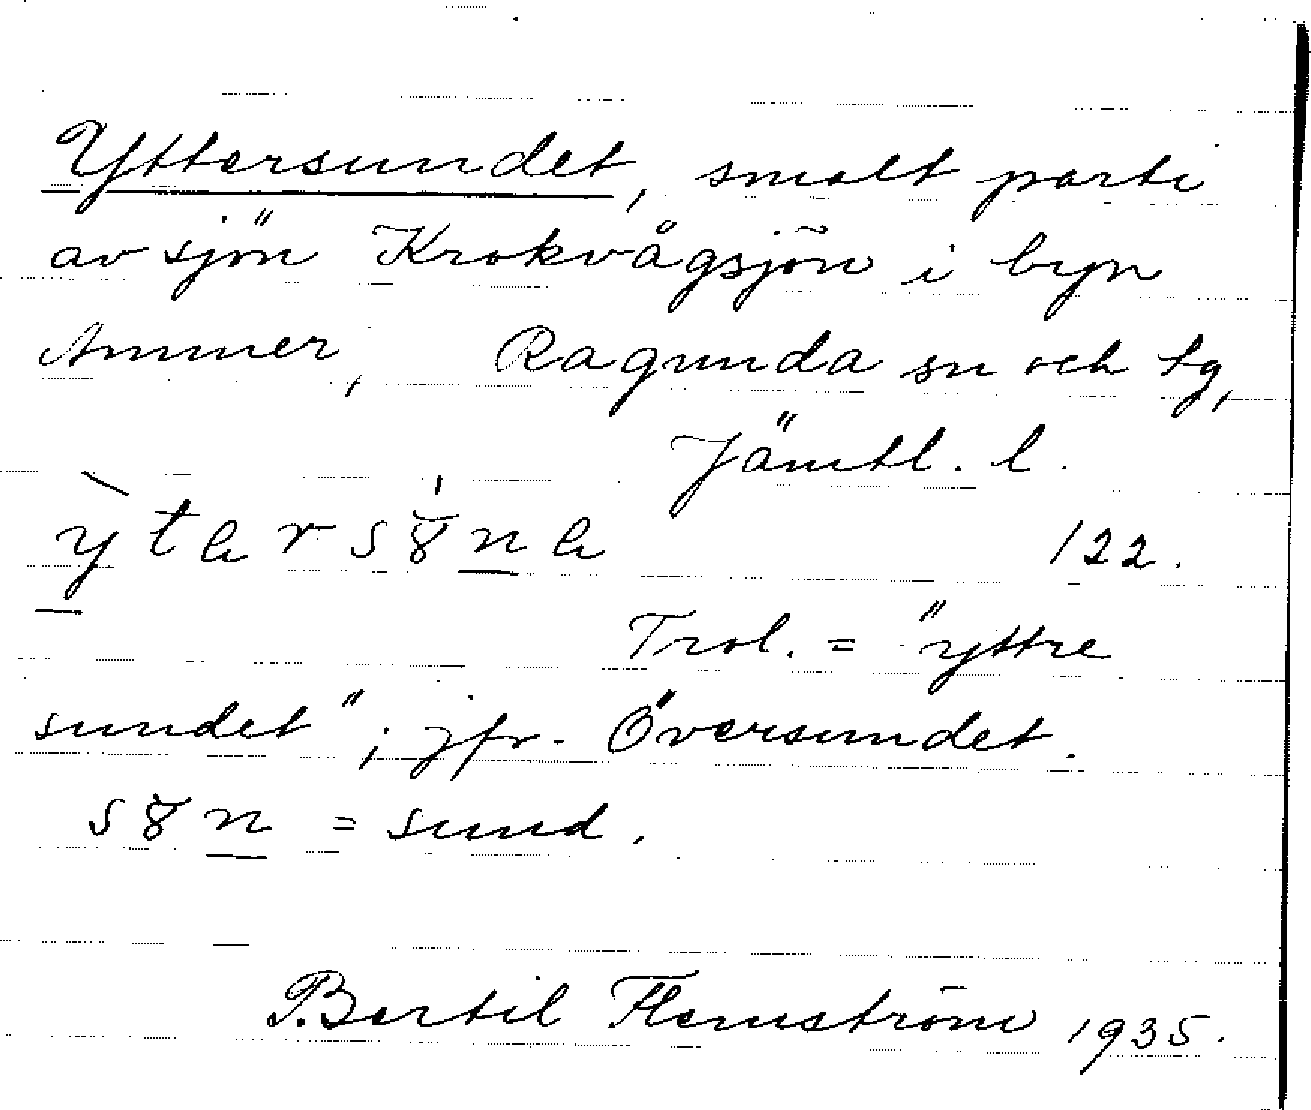 Yttersundet, smalt parti
av sjön Krokvågsjön i byn
Ammer, Ragunda sn och tg,
Jämtl. l.
122.
Trol. = "yttre
sundet"; jfr. Översundet.
= sund.
Bertil Flemström 1935.